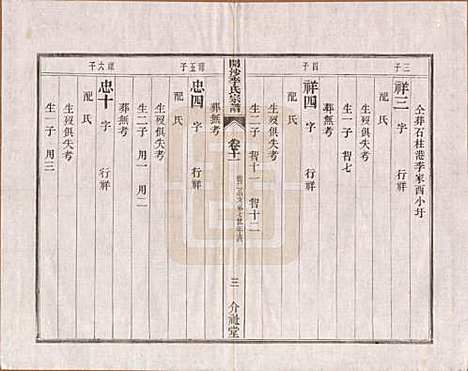 三子
仝葬石柱港李家西小圩
祥三 字 行祥
配氏
生歿俱失考
生一子 智七
葬無考
四子
祥四 字 行祥
配氏
生歿俱失考
生二子 智十一 智十二
葬無考
開沙李氏宗譜
卷十一
三
介祉堂
祥五子
忠四 字 行祥
配氏
生歿俱失考
生二子 用一 用二
葬無考
祥六子
忠十 字 行祥
配氏
生歿俱失考
生一子 用三